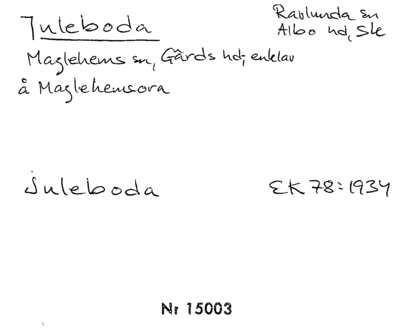 Juleboda
Ravlunda sn
Albo hd, Ske
Maglehems sn, Gärds hd; enklav
å Maglehemsora
Juleboda EK 78:1934
Nr 15003